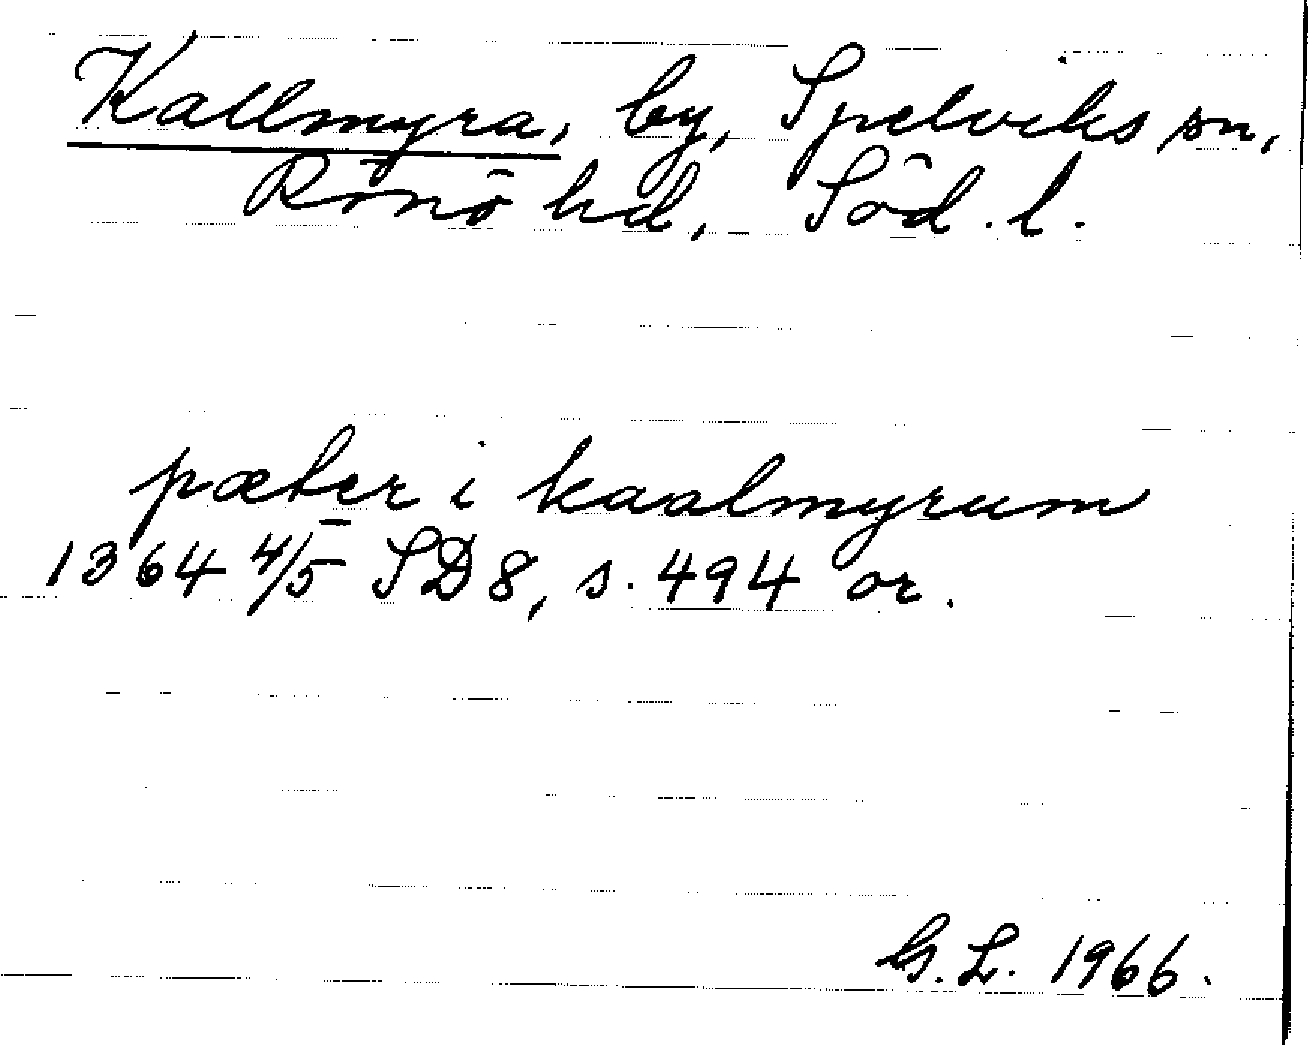 Kallmyra, by, Spelviks sn,
Rönö hd, Söd. l.
pæter i kaalmyrum
1364 4/5 SD 8, s. 494 or.
G. L. 1966.